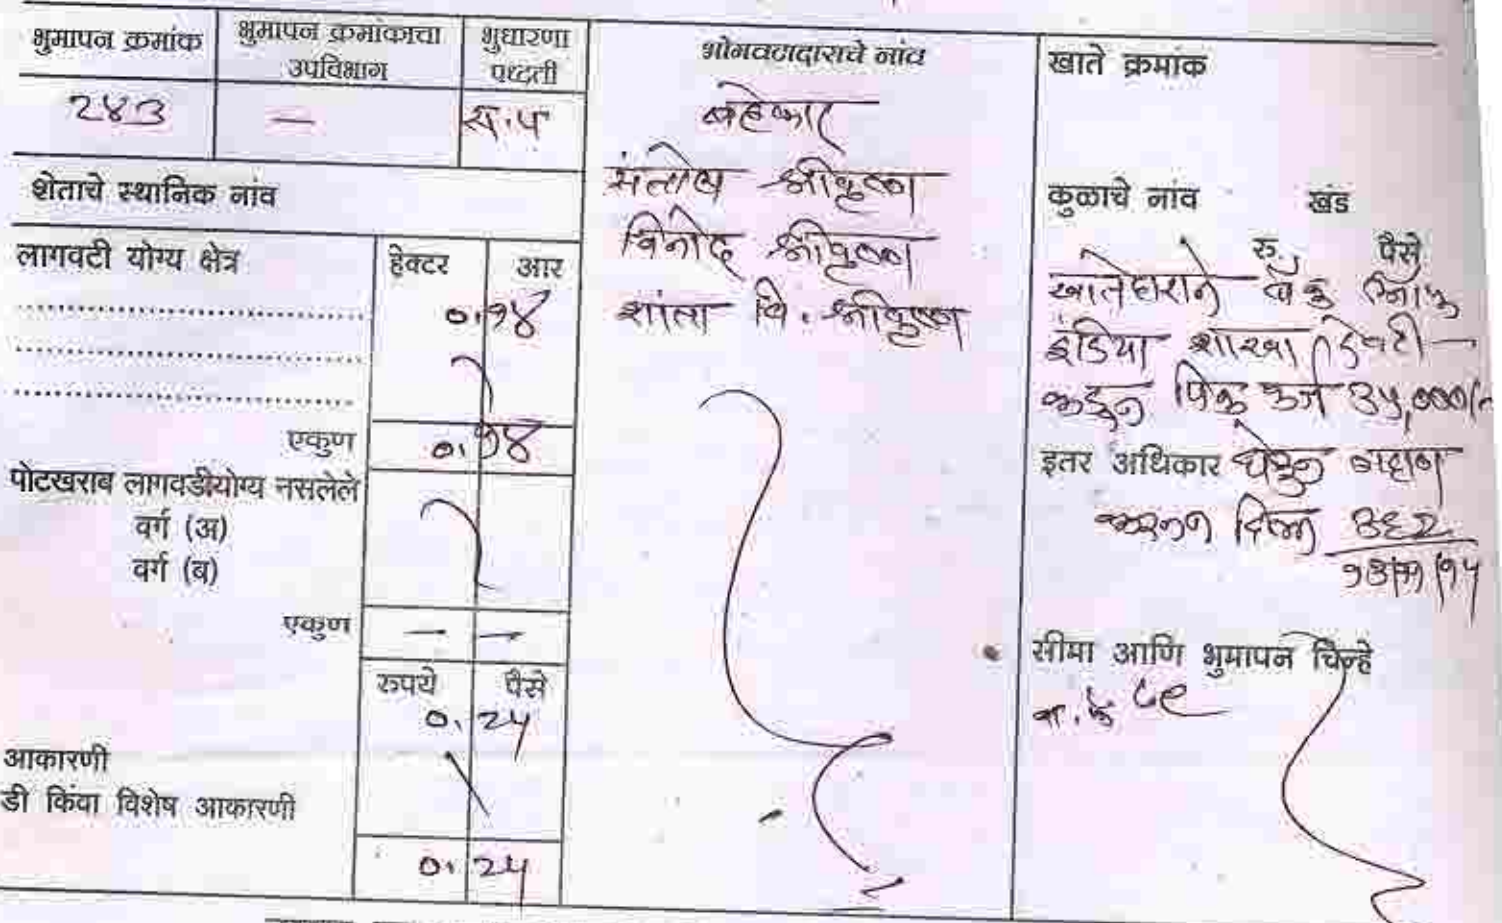 भुमापन क्रमांक
भुमापन क्रमांकाचा
उपविभाग
भुधारणा
पध्दती
२४३
—
स.प
शेताचे स्थानिक नांव
लागवटी योग्य क्षेत्र
हेक्टर
आर
०.७४
एकुण
०.७४
पोटखराब लागवडीयोग्य नसलेले
वर्ग (अ)
वर्ग (ब)
एकुण
— —
रुपये
पैसे
०.२५
आकारणी
डी किंवा विशेष आकारणी
०.२५
भोगवटादाराचे नांव
बहेकार
संतोष श्रीकृष्ण
विनोद श्रीकृष्ण
शांता वि. श्रीकृष्ण
खाते क्रमांक
कुळाचे नांव
खंड
रु.
पैसे
खातेदाराने बँक ऑफ
इंडिया शाखा
कडुन पिक कर्ज ३५,०००/-
इतर अधिकार
घेऊन गहाण
करून दिला ३६२
सीमा आणि भुमापन चिन्हे